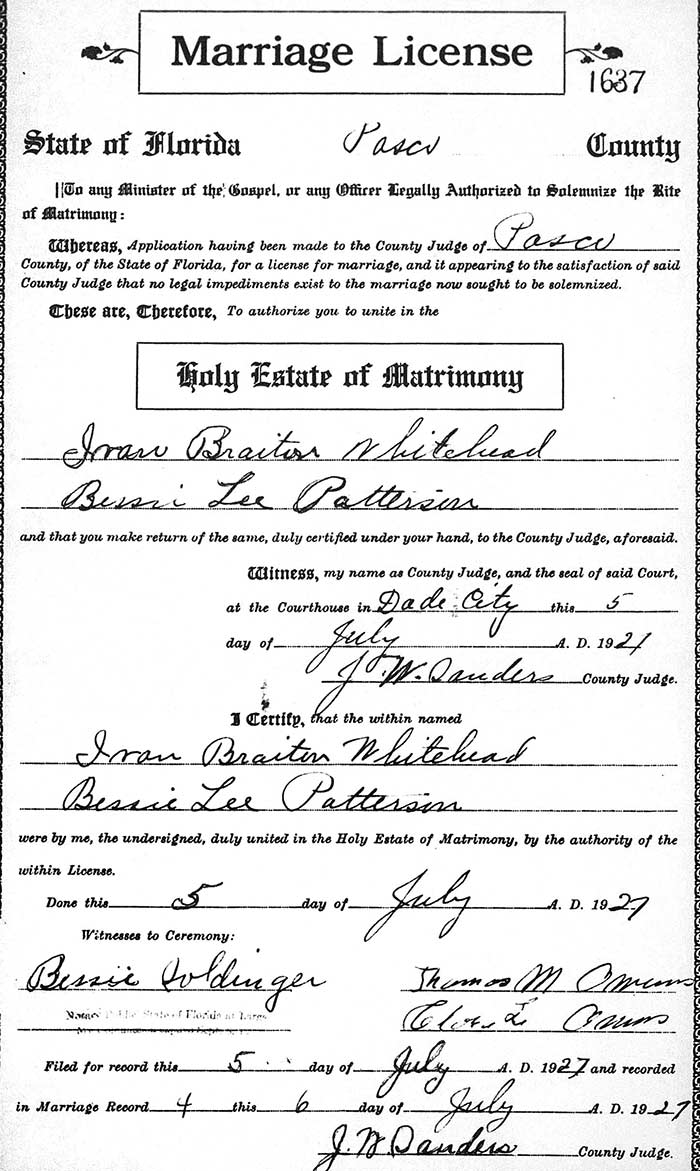 Marriage License
1637
State of Florida Pasco County
To any Minister of the Gospel, or any Officer Legally Authorized to Solemnize the Rite
of Matrimony:
Whereas, Application having been made to the County Judge of Pasco
County, of the State of Florida, for a license for marriage, and it appearing to the satisfaction of said
County Judge that no legal impediments exist to the marriage now sought to be solemnized.
These are, Therefore, To authorize you to unite in the
Holy Estate of Matrimony
Ivan Braiton Whitehead
Bessie Lee Patterson
and that you make return of the same, duly certified under your hand, to the County Judge, aforesaid.
Witness, my name as County Judge, and the seal of said Court,
at the Courthouse in Dade City this 5
day of July A. D. 1927
J. W. Sanders County Judge.
I Certify, that the within named
Ivan Braiton Whitehead
Bessie Lee Patterson
were by me, the undersigned, duly united in the Holy Estate of Matrimony, by the authority of the
within License.
Done this 5 day of July A. D. 1927
Witnesses to Ceremony:
Bessie Thomas M Owens
Notary Public State of Florida at Large
Owens
Filed for record this 5 day of July A. D. 1927 and recorded
in Marriage Record 4 this 6 day of July A. D. 1927
J. W Sanders County Judge.